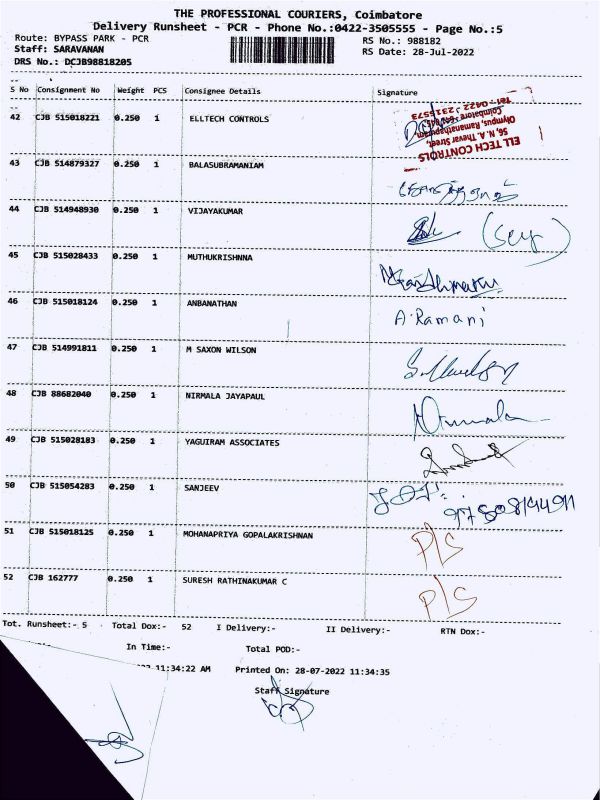 THE PROFESSIONAL COURIERS, Coimbatore
Delivery Runsheet - PCR - Phone No.:0422-3505555 - Page No.:5
Route: BYPASS PARK - PCR RS No.: 988182
Staff: SARAVANAN RS Date: 28-Jul-2022
DRS No.: DCJB98818205
S No Consignment No Weight PCS Consignee Details Signature
42 CJB 515018221 0.250 1 ELLTECH CONTROLS
ELL TECH CONTROLS
56, N.A. Thevar Street,
Olympus, Ramanathapuram,
Coimbatore
Tel: 0422 - 2315573
43 CJB 514879327 0.250 1 BALASUBRAMANIAM
44 CJB 514948930 0.250 1 VIJAYAKUMAR
45 CJB 515028433 0.250 1 MUTHUKRISHNNA
46 CJB 515018124 0.250 1 ANBANATHAN A. Ramani
47 CJB 514991811 0.250 1 M SAXON WILSON
48 CJB 88682040 0.250 1 NIRMALA JAYAPAUL Nirmala
49 CJB 515028183 0.250 1 YAGUIRAM ASSOCIATES
50 CJB 515054283 0.250 1 SANJEEV
51 CJB 515018125 0.250 1 MOHANAPRIYA GOPALAKRISHNAN P/S
52 CJB 162777 0.250 1 SURESH RATHINAKUMAR C P/S
Tot. Runsheet:- 5 Total Dox:- 52 I Delivery:- II Delivery:- RTN Dox:-
In Time:- Total POD:-
11:34:22 AM Printed On: 28-07-2022 11:34:35
Staff Signature